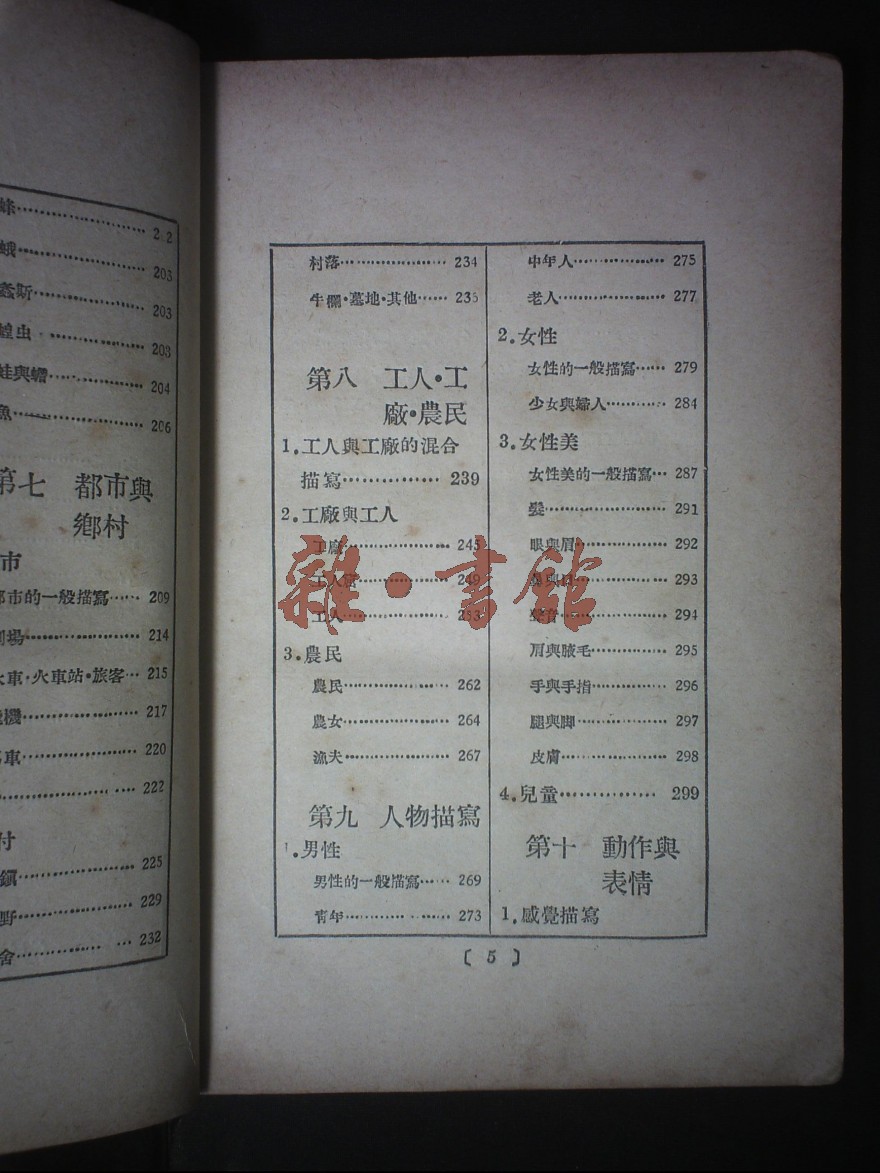 蜂 2 2
蛾 203
螽斯 203
蝗虫 203
蛙與蟾 204
魚 206
第七 都市與
鄉村
市
都市的一般描寫 209
劇場 214
火車·火車站·旅客 215
機 217
車 220
222
村
鎭 225
野 229
舍 232
村落 234
牛欄·墓地·其他 235
第八 工人·工
廠·農民
1.工人與工廠的混合
描寫 239
2.工廠與工人
工廠 245
工人 249
工人 253
3.農民
農民 262
農女 264
漁夫 267
第九 人物描寫
1.男性
男性的一般描寫 269
靑年 273
中年人 275
老人 277
2.女性
女性的一般描寫 279
少女與婦人 284
3.女性美
女性美的一般描寫 287
髮 291
眼與眉 292
鼻與口 293
聲音 294
肩與腋毛 295
手與手指 296
腿與脚 297
皮膚 298
4.兒童 299
第十 動作與
表情
1.感覺描寫
〔 5 〕
雜·書館